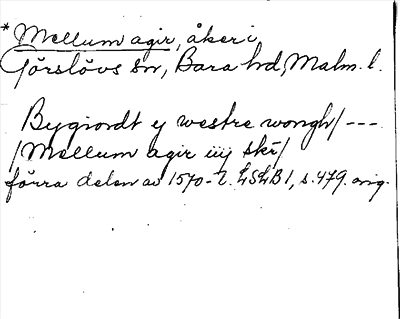 * Mellum agir, åker i
Görslövs sn, Bara hd, Malm. l.
Bygiordt y westre wongh/ ---
/Mellum agir iiij skr/
förra delen av 1570-t. LSLB 1, s. 479. orig.